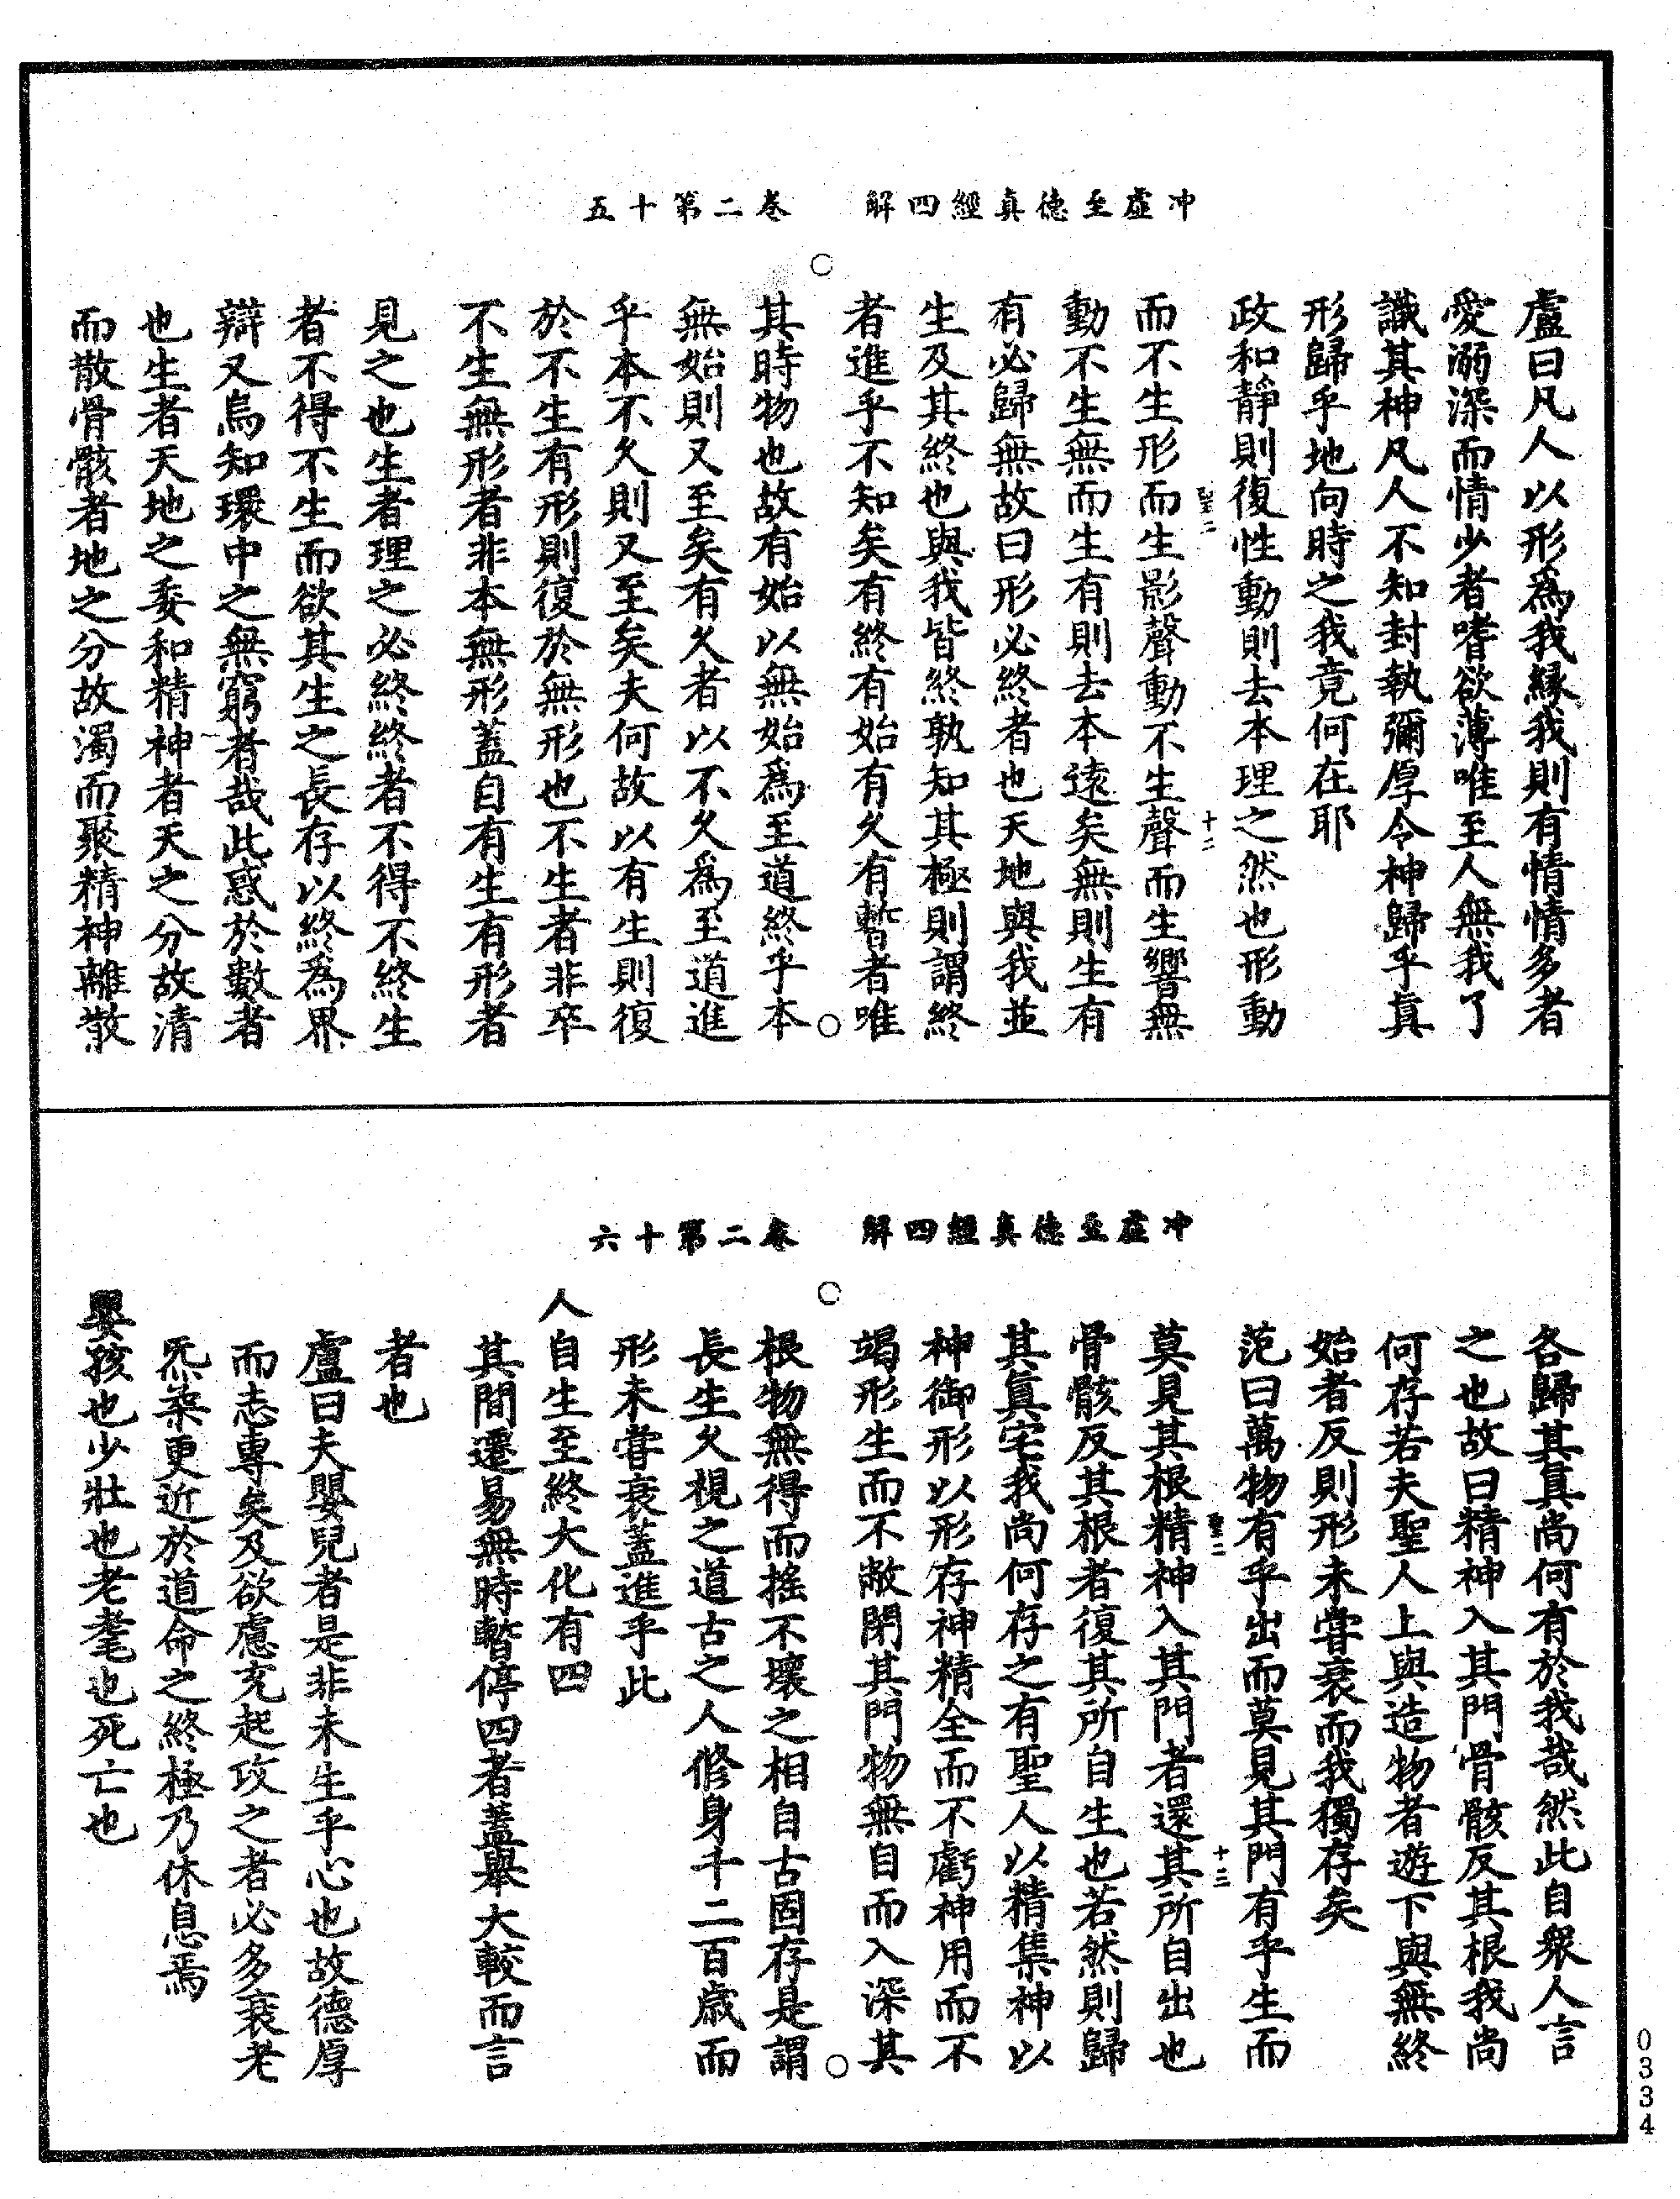 冲虛至德真經四解　卷二第十五
盧曰凡人以形為我緣我則有情情多者
愛溺深而情少者嗜欲薄唯至人無我了
識其神凡人不知封執彌厚令神歸乎真
形歸乎地向時之我竟何在耶
政和靜則復性動則去本理之然也形動
聖二　十二
而不生形而生影聲動不生聲而生響無
動不生無而生有有則去本遠矣無則生有
有必歸無故曰形必終者也天地與我並
生及其終也與我皆終孰知其極則謂終
者進乎不知矣有終有始有久有暫者唯
其時物也故有始以無始為至道終乎本
無始則又至矣有久者以不久為至道進
乎本不久則又至矣夫何故以有生則復
於不生有形則復於無形也不生者非卒
不生無形者非本無形蓋自有生有形者
見之也生者理之必終終者不得不終生
者不得不生而欲其生之長存以終為界
辯又烏知環中之無窮者哉此惑於數者
也生者天地之委和精神者天之分故清
而散骨骸者地之分故濁而聚精神離散
冲虛至德真經四解　卷二第十六
各歸其真尚何有於我哉然此自眾人言
之也故曰精神入其門骨骸反其根我尚
何存若夫聖人上與造物者遊下與無終
始者反則形未嘗衰而我獨存矣
范曰萬物有乎出而莫見其門有乎生而
聖二　十三
莫見其根精神入其門者還其所自出也
骨骸反其根者復其所自生也若然則歸
其真宅我尚何存之有聖人以精集神以
神御形以形存神精全而不虧神用而不
竭形生而不敝閉其門物無自而入深其
根物無得而搖不壞之相自古固存是謂
長生久視之道古之人修身千二百歲而
形未嘗衰蓋進乎此
人自生至終大化有四
其間遷易無時暫停四者蓋舉大較而言
者也
盧曰夫嬰兒者是非未生乎心也故德厚
而志專矣及欲慮充起攻之者必多衰老
炁柒更近於道命之終極乃休息焉
嬰孩也少壯也老耄也死亡也
0334